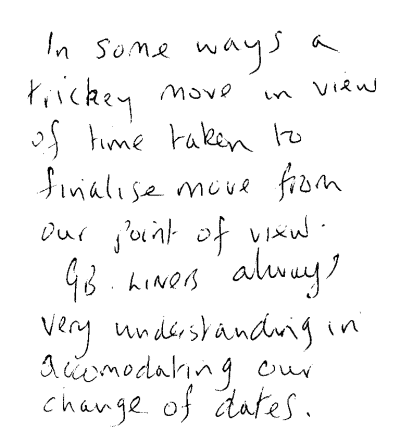 In some ways a
trickey move in view
of time taken to
finalise move from
our point of view.
GB. LINERS always
very understanding in
accomodating our
change of dates.